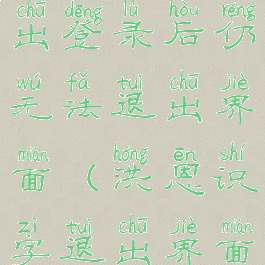 chū dēng lù hòu réng
出登录后仍
wú fǎ tuì chū jiè
无法退出界
miàn hóng ēn shí
面(洪恩识
zì tuì chū jiè miàn
字退出界面